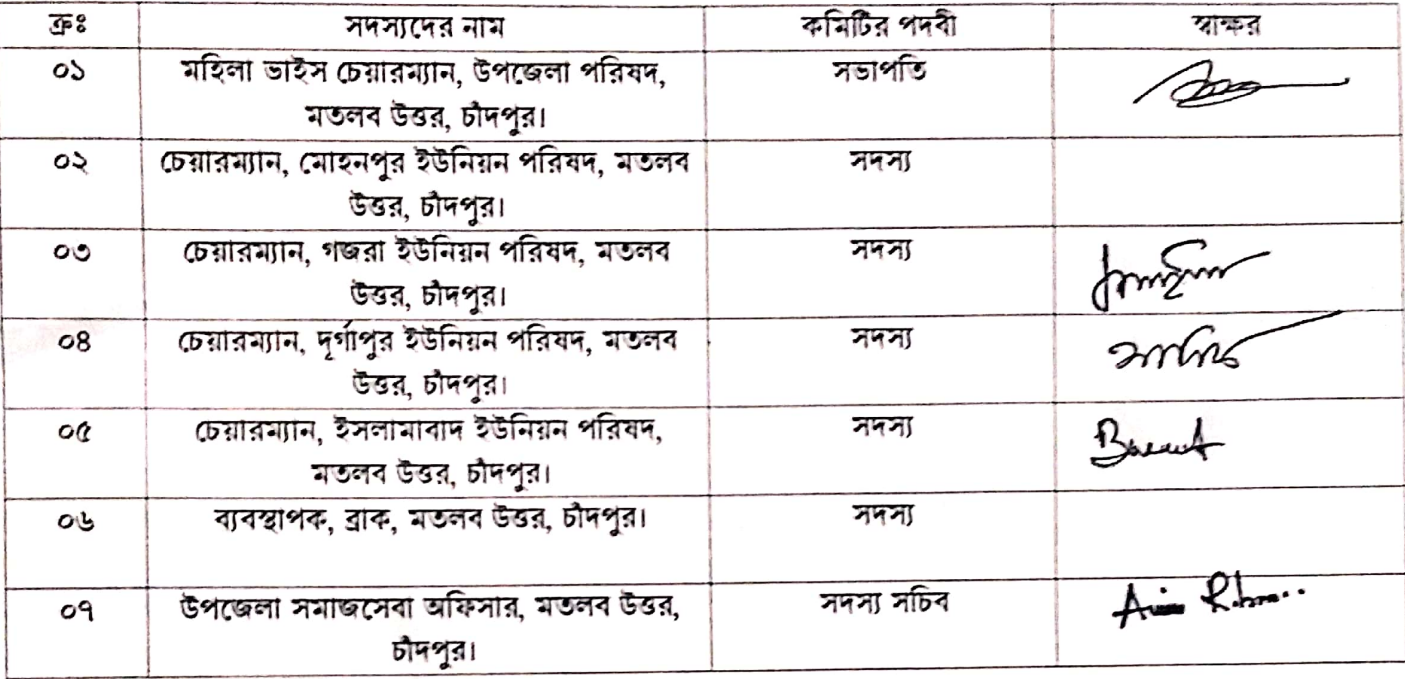 ক্রঃ সদস্যদের নাম কমিটির পদবী স্বাক্ষর
০১ মহিলা ভাইস চেয়ারম্যান, উপজেলা পরিষদ, সভাপতি
মতলব উত্তর, চাঁদপুর।
০২ চেয়ারম্যান, মোহনপুর ইউনিয়ন পরিষদ, মতলব সদস্য
উত্তর, চাঁদপুর।
০৩ চেয়ারম্যান, গজরা ইউনিয়ন পরিষদ, মতলব সদস্য
উত্তর, চাঁদপুর।
০৪ চেয়ারম্যান, দূর্গাপুর ইউনিয়ন পরিষদ, মতলব সদস্য
উত্তর, চাঁদপুর।
০৫ চেয়ারম্যান, ইসলামাবাদ ইউনিয়ন পরিষদ, সদস্য
মতলব উত্তর, চাঁদপুর।
০৬ ব্যবস্থাপক, ব্রাক, মতলব উত্তর, চাঁদপুর। সদস্য
০৭ উপজেলা সমাজসেবা অফিসার, মতলব উত্তর, সদস্য সচিব
চাঁদপুর।